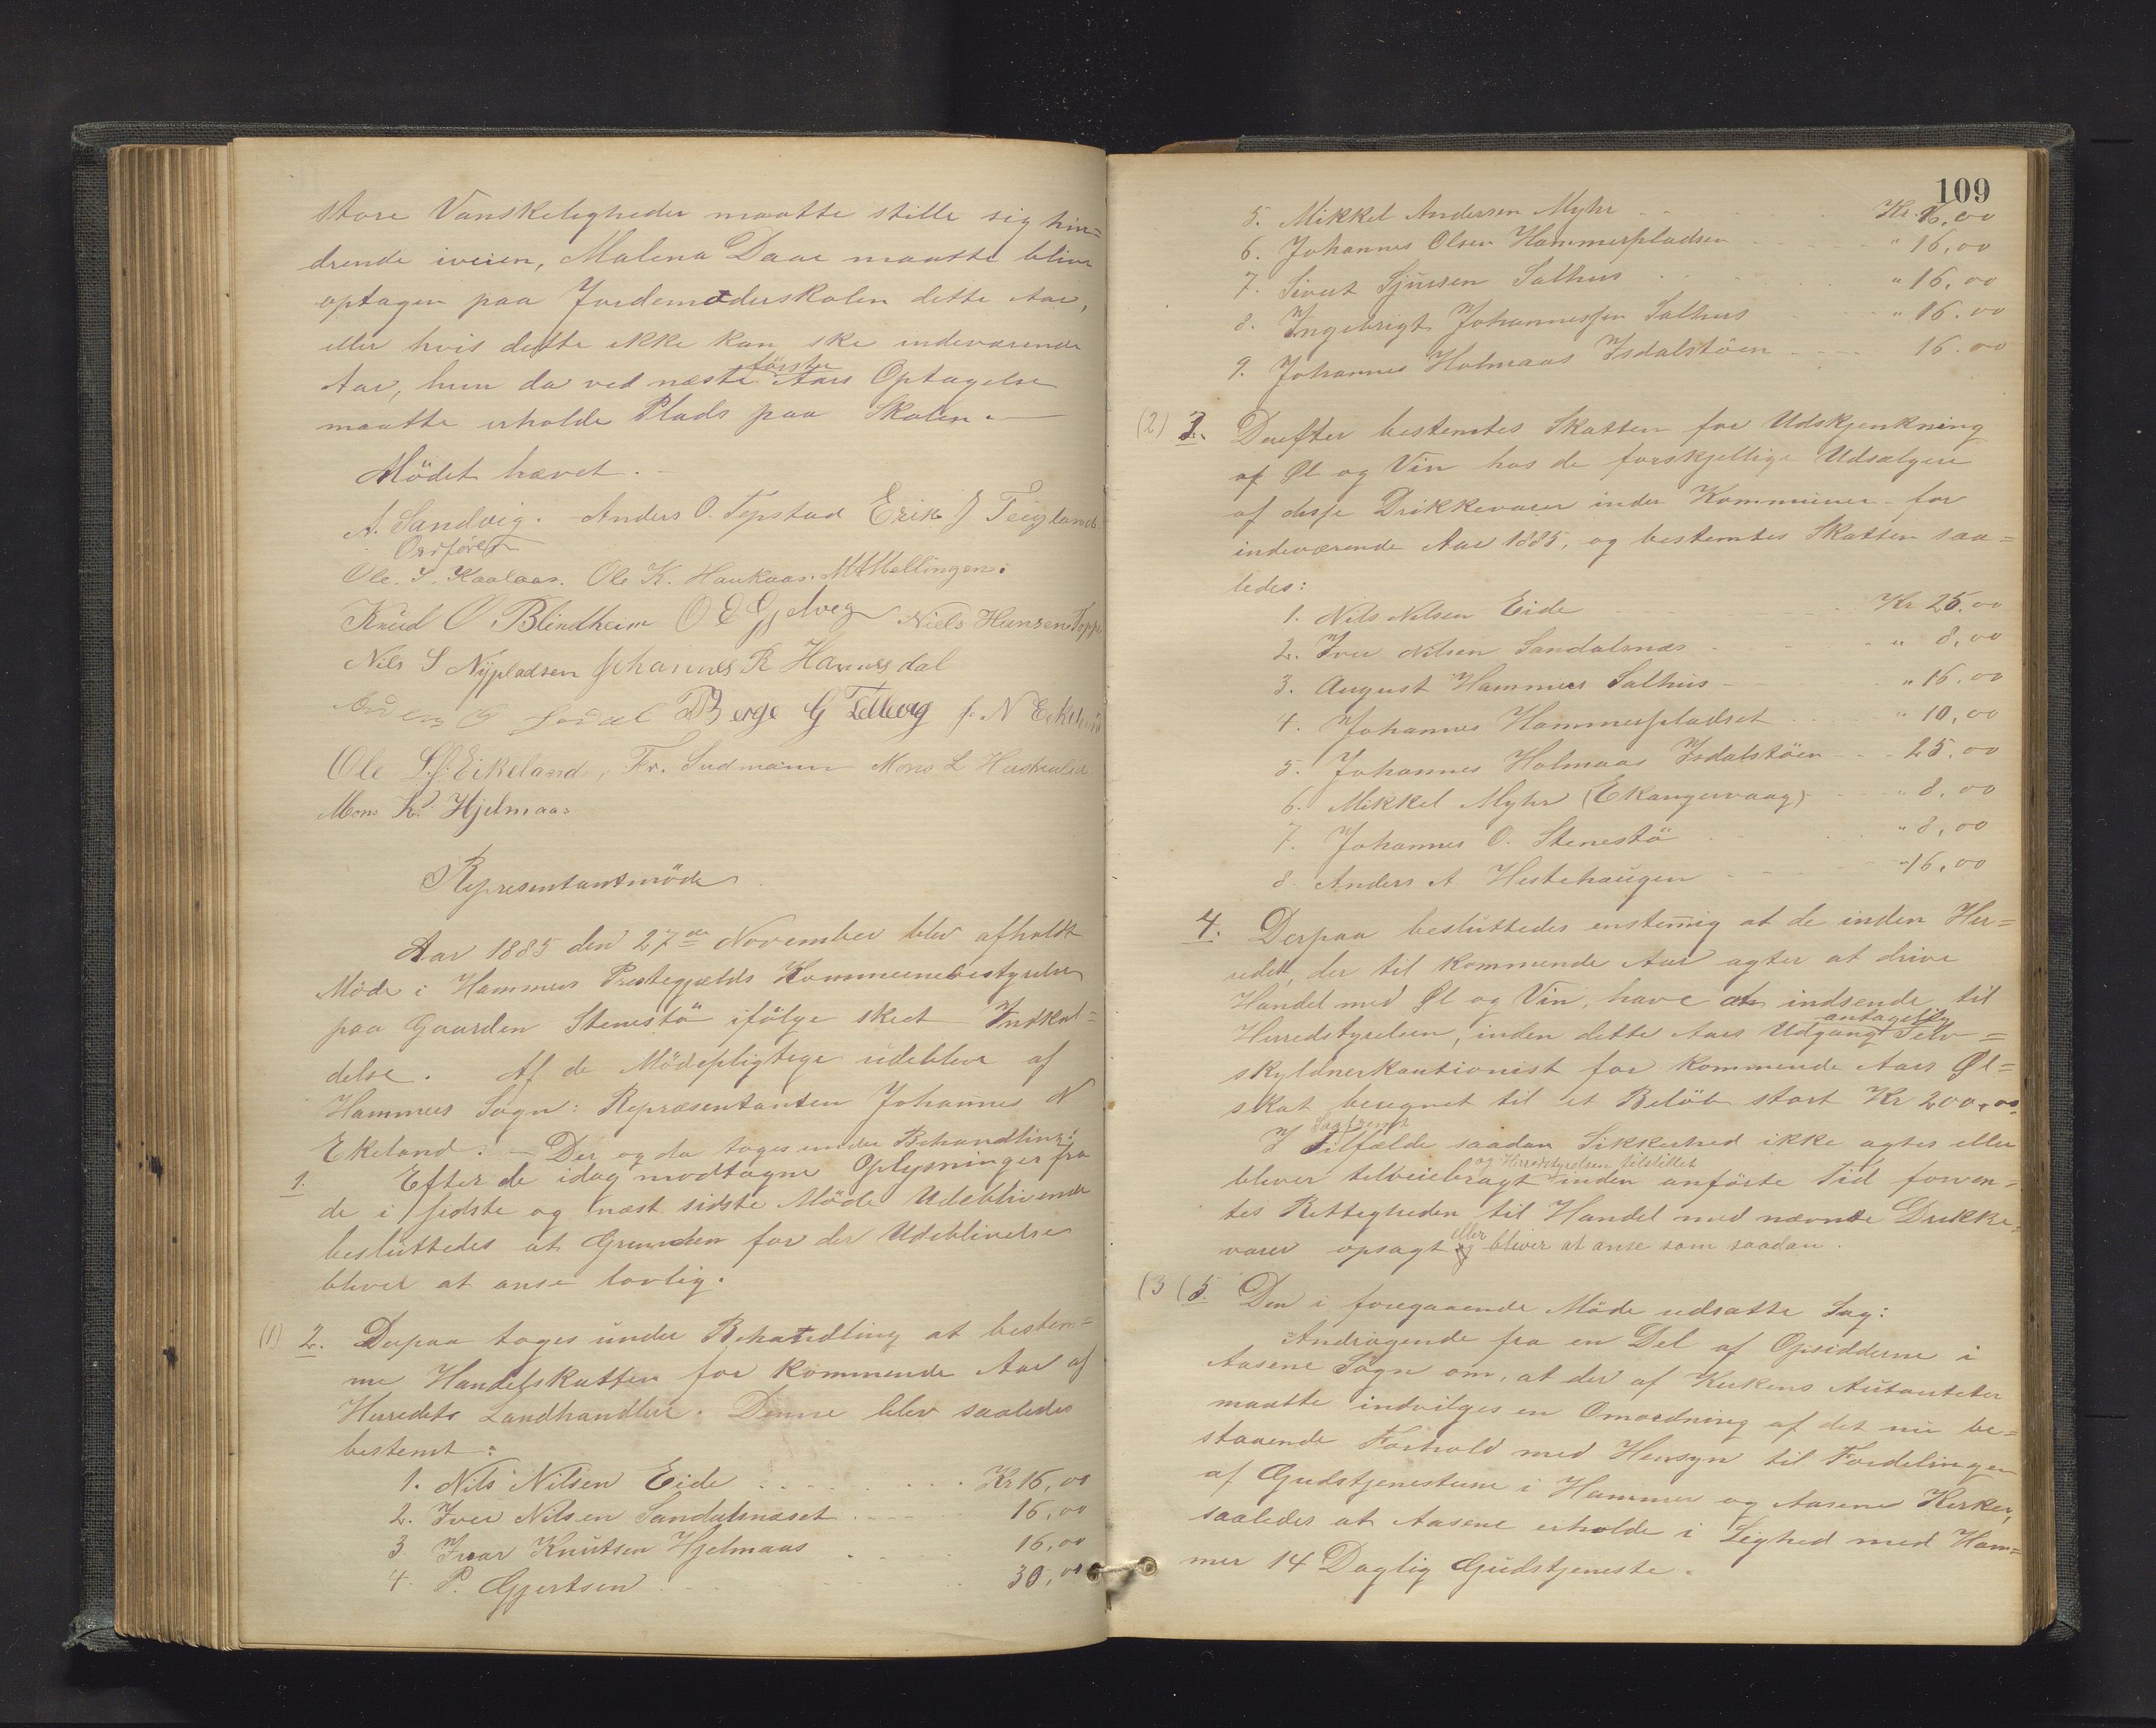 store Vanskeligheder maatte stille sig hin=
drende iveien, Malena Daae maatte blive
optagen paa Jordemoderskolen dette Aar,
eller hvis dette ikke kan ske indeværende
Aar, hun da ved næste Aars første Optagelse
maatte erholde Plads paa Skolen.
Mödet hævet.
A. Sandvig. Anders O. Tepstad Erik J Teigland
Ordförer
Ole. I. Kaalaas. Ole K. Haukaas. M Mellingen.
Knud O Blindheim O E Gjelveg Niels Hansen Toppe
Nils S Nÿpladsen Johannes R Hannesdal
Berge G Tellevig J. N Eikeland
Ole L. Eikeland, Fr. Sudmann Mons L
Mons K. Hjelmaas
Representantmöde
Aar 1885 den 27de November blev afholdt
Möde i Hammers Prestegjælds Kommunebestyrelse
paa Gaarden Stenestö ifölge skeet Indkal=
delse. Af de Mödepligtige udebleve af
Hammers Sogn: Repræsentanten Johannes N
Ekeland. – Der og da toges under Behandling:
1. Efter de idag modtagne Oplysninger fra
de i sidste og næst sidste Möde Udeblivende
besluttedes at Grunden for der Udeblivelse
bliver at anse lovlig.
(1) 2. Derpaa toges under Behandling at bestem=
me Handelskatten for kommende Aar af
Herredets Landhandlere. Denne blev saaledes
bestemt:
1. Nils Nilsen Eide Kr 16,00
2. Iver Nilsen Sandalsnæset 16,00
3 Ivar Knutsen Hjelmaas 16,00
4. P. Gjertsen 30,00
109
5. Mikkel Andersen Myhr Kr. 16,00
6. Johannes Olsen Hammerspladsen " 16,00
7. Sivert Sjursen Salhus " 16,00
8. Ingebrigt Johannessen Salhus " 16.00
9. Johannes Holmaas Isdalstöen 16.00
(2) 3. Derefter bestemtes Skatten for Udskjenkning
af Øl og Vin hos de forskjellige Udsælgere
af disse Drikkevarer inden Kommunen for
indeværende Aar 1885, og bestemtes Skatten saa=
ledes:
1. Nils Nilsen Eide Kr 25.00
2. Iver Nilsen Sandalsnæs " 8,00
3. August Hammer Salhus " 16.00
4. Johannes Hammerspladset " 10,00
5. Johannes Holmaas Isdalstöen 25.00
6. Mikkel Myhr (Ekangervaag) " 8,00
7. Johannes O. Stenestö " 8,00
8. Anders A Hestehaugen " 16,00
4. Derpaa besluttedes enstemig at de inden Her=
redet, der til kommende Aar agter at drive
Handel med Øl og Vin, have at indsende til
Herredstyrelsen, inden dette Aars Udgang antagelig Selv=
skyldnerkautionist for kommende Aars Øl=
skat beregnet til et Belöb stort Kr 200,00
I Tilfælde saafremt saadan Sikkerhed ikke agtes eller
bliver tilveiebragt og Herredstyrelsen tilstillet inden anförte Tid forven=
tes Rettigheden til Handel med nævnte Drikke=
varer opsagt eller bliver at anse som saadan.
(3 (5. Den i foregaaende Möde udsatte Sag:
Andragende fra en Del af Opsidderne i
Aasene Sogn om, at der af Kirkens Autoriteter
maatte indvilges en Omordning af det nu be=
staaende Forhold med Hensyn til Fordelingen
af Gudstjenesterne i Hammer og Aasene Kirker,
saaledes at Aasene erholde i Lighed med Ham=
mer 14 Daglig Gudstjeneste.